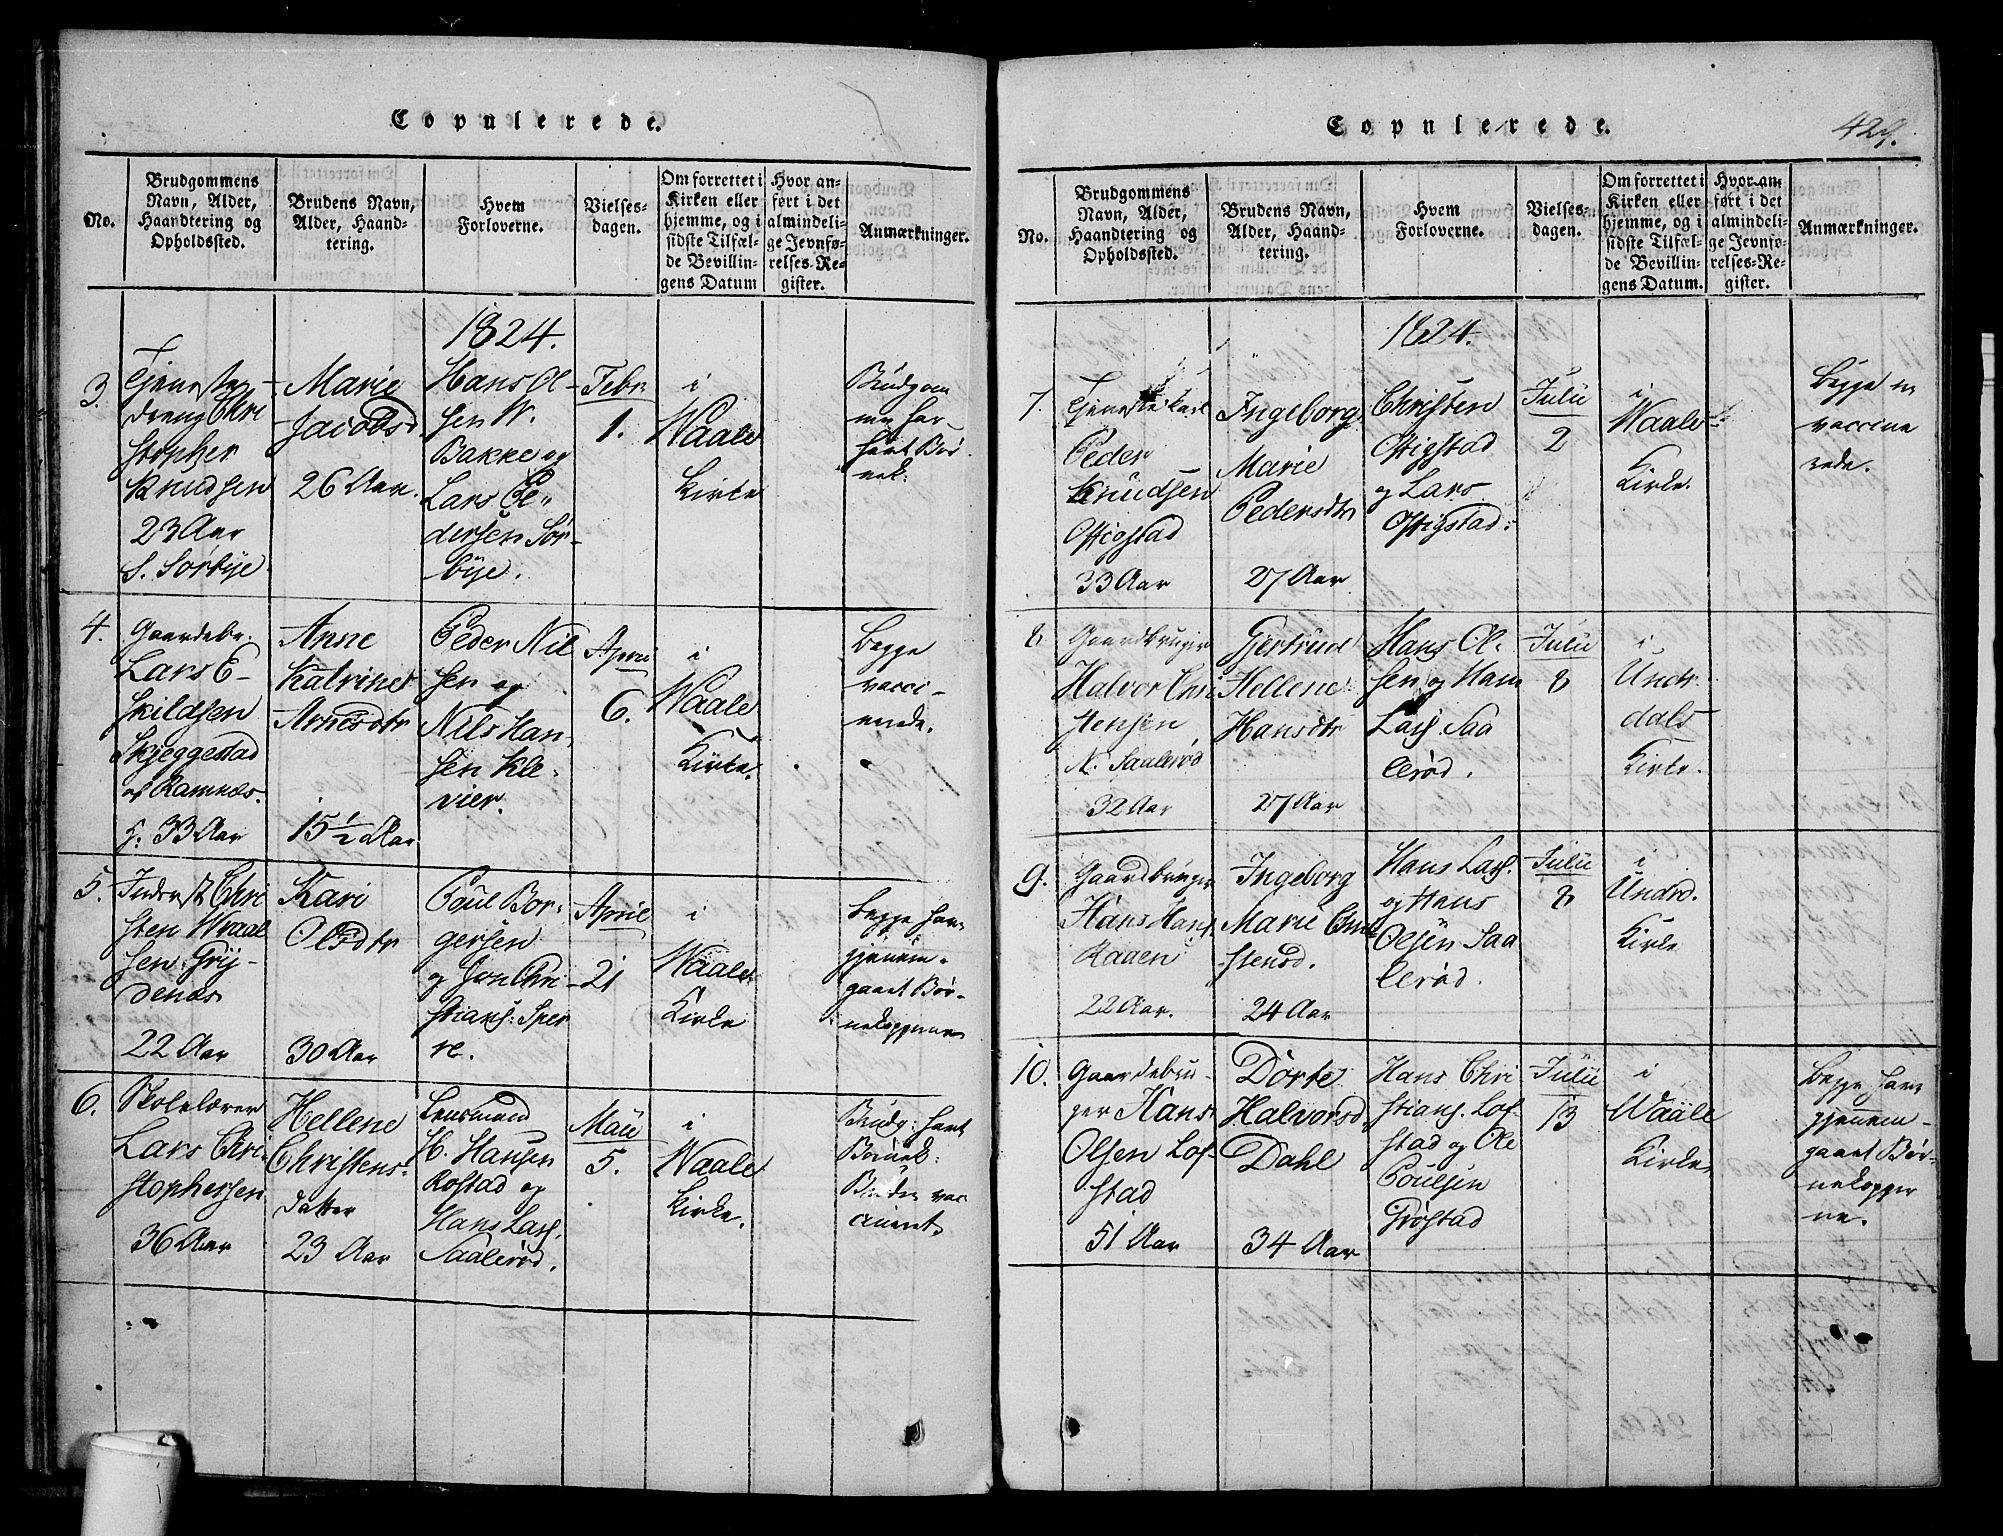 Copulerede.
No.
Brudgommens
Navn, Alder,
Haandtering og
Opholdssted.
Brudens Navn,
Alder, Haand-
tering.
Hvem
Forloverne.
Vielses-
dagen.
Om forrettet i
Kirken eller
hjemme, og i
sidste Tilfæl-
de Bevillin-
gens Datum
Hvor an-
ført i det
almindeli-
ge Jevnfø-
relses-Re-
gister.
Anmærkninger.
1824.
3.
Tjeneste
dreng Chri
stopher
Knudsen
23 Aar
S. Sørbye.
Marie
Jacobsd
26 Aar.
Hans Ol-
sen N.
Bakke og
Lars Pe-
dersen Sør-
bye.
Febr
1.
i
Waale
Kirke
Brudgom
men har
havt Bør
nek.
4.
Gaardebr.
Lars E-
skildsen
Skjeggestad
af Ramnæs.
33 Aar
Anne
Katrine
Arnesdtr
15 1/2 Aar
Peder Nil
sen og
Nils Han
sen Kle-
vier.
April
6.
i
Waale
Kirke.
Begge
vacci-
nerede.
5.
Inderst Chri
sten Wraal
sen Gry-
denæs
22 Aar
Kari
Olsdtr
30 Aar
Poul Bor-
gersen
og Jon Chri
stians: Sper
re.
April
21
i
Waale
Kirke
Begge har
gjennem-
gaaet Bør-
nekoppene
6.
Skolelærer
Lars Chri
stophersen
36 Aar
Hellene
Christens-
datter
23 Aar
Lensmand
H. Hansen
Rostad og
Hans Lars.
Saalerød.
Maii
5.
i
Waale
Kirke.
Brudg: havt
Børnek:
Bruden vac
cineret.
Copulerede.
429.
No.
Brudgommens
Navn, Alder,
Haandtering og
Opholdssted.
Brudens Navn,
Alder, Haand-
tering.
Hvem
Forloverne.
Vielses-
dagen.
Om forrettet i
Kirken eller
hjemme, og i
sidste Tilfæl-
de Bevillin-
gens Datum.
Hvor an-
ført i det
almindeli-
ge Jevnfø-
relses-Re-
gister.
Anmærkninger.
1824.
7.
Tjenestekarl
Peder
Knudsen
Offigstad
33 Aar
Ingeborg
Marie
Pedersdtr
27 Aar
Christen
Offigstad
og Lars
Offigstad:
Julii
2
i
Waale
Kirke.
Begge er
vaccine
rede.
8
Gaardbruger
Halvor Chri
stensen
N. Saalerød
32 Aar
Gjertrud
Hellene
Hansdtr
27 Aar
Hans Ol-
sen og Hans
Lars. Saa
lerød.
Julii
8
i
Undr.
dals
Kirke.
9.
Gaardbruger
Hans Hans.
Raaen
22 Aar.
Ingeborg
Marie Chri
stensd.
24 Aar
Hans Lars.
og Hans
Olsen Saa
lerød.
Julii
8
i
Undrd.
Kirke
10.
Gaardebru-
ger Hans
Olsen Lof-
stad
51 Aar
Dorte
Halvorsd.
Dahl
34 Aar
Hans Chri
stians. Lof
stad og Ole
Poulsen
Grøstad
Julii
13
i
Waale
Kirke
Begge har
gjennem-
gaaet Bør-
nekopper
ne.